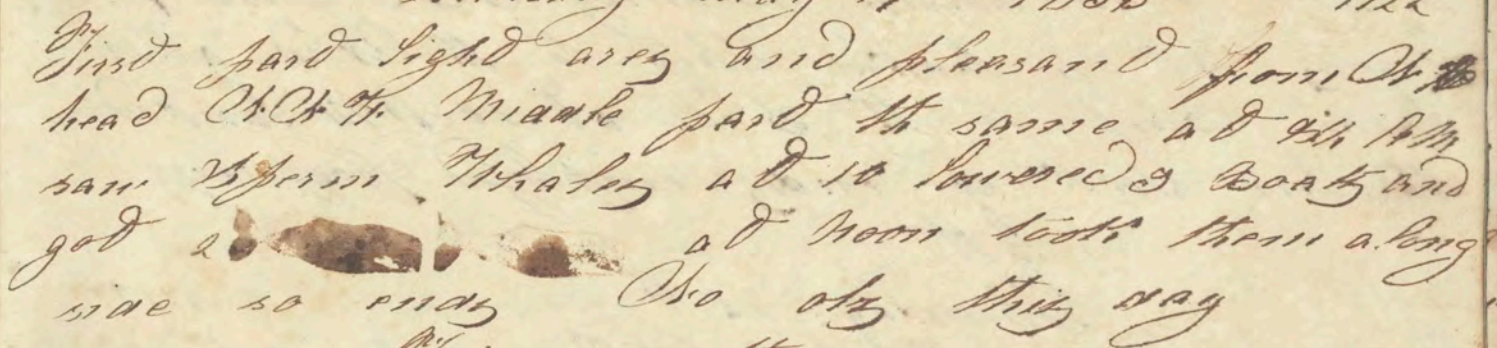 First part light ares and pleasant from N
head N.N.W. Middle part the same at AM
saw Sperm Whales at 10 lowered 3 Boats and
got 2 at Noon took them along
side so ends No obs this day